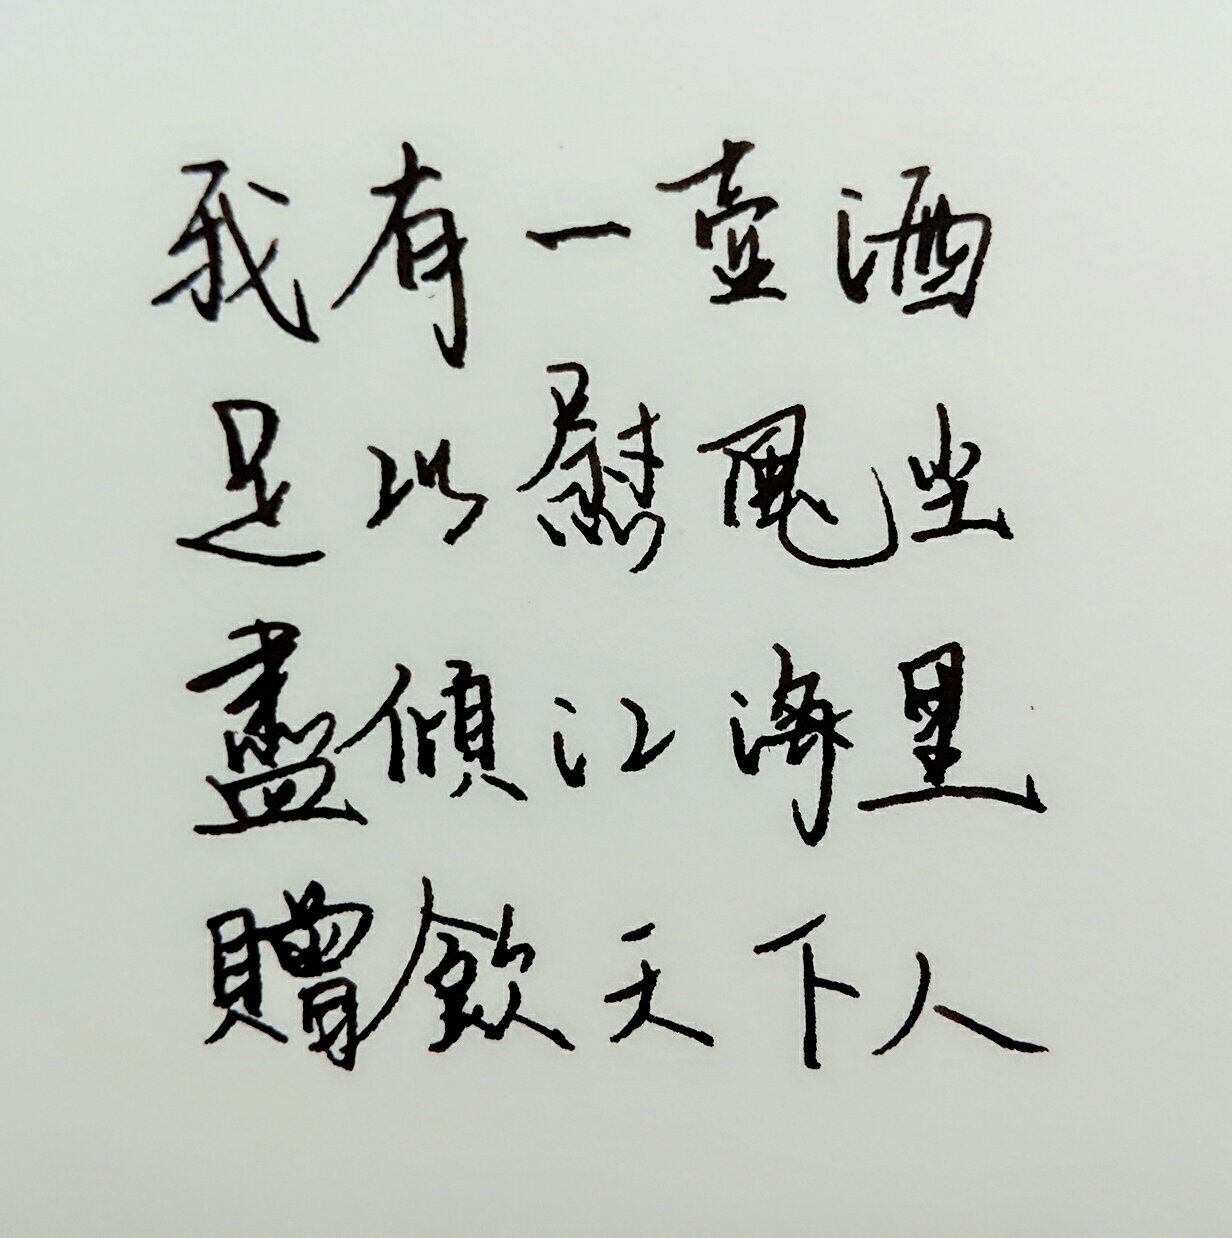 我有一壺酒
足以慰風尘
盡傾江海里
贈飲天下人